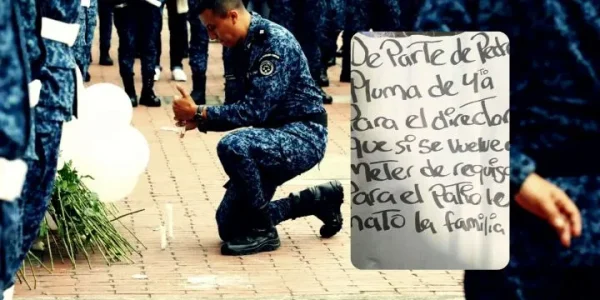 De Parte de Pedr
Pluma de 4ta
Para el director
Que si se vuelve
Meter de requis
Para el Patio le
mato la familia